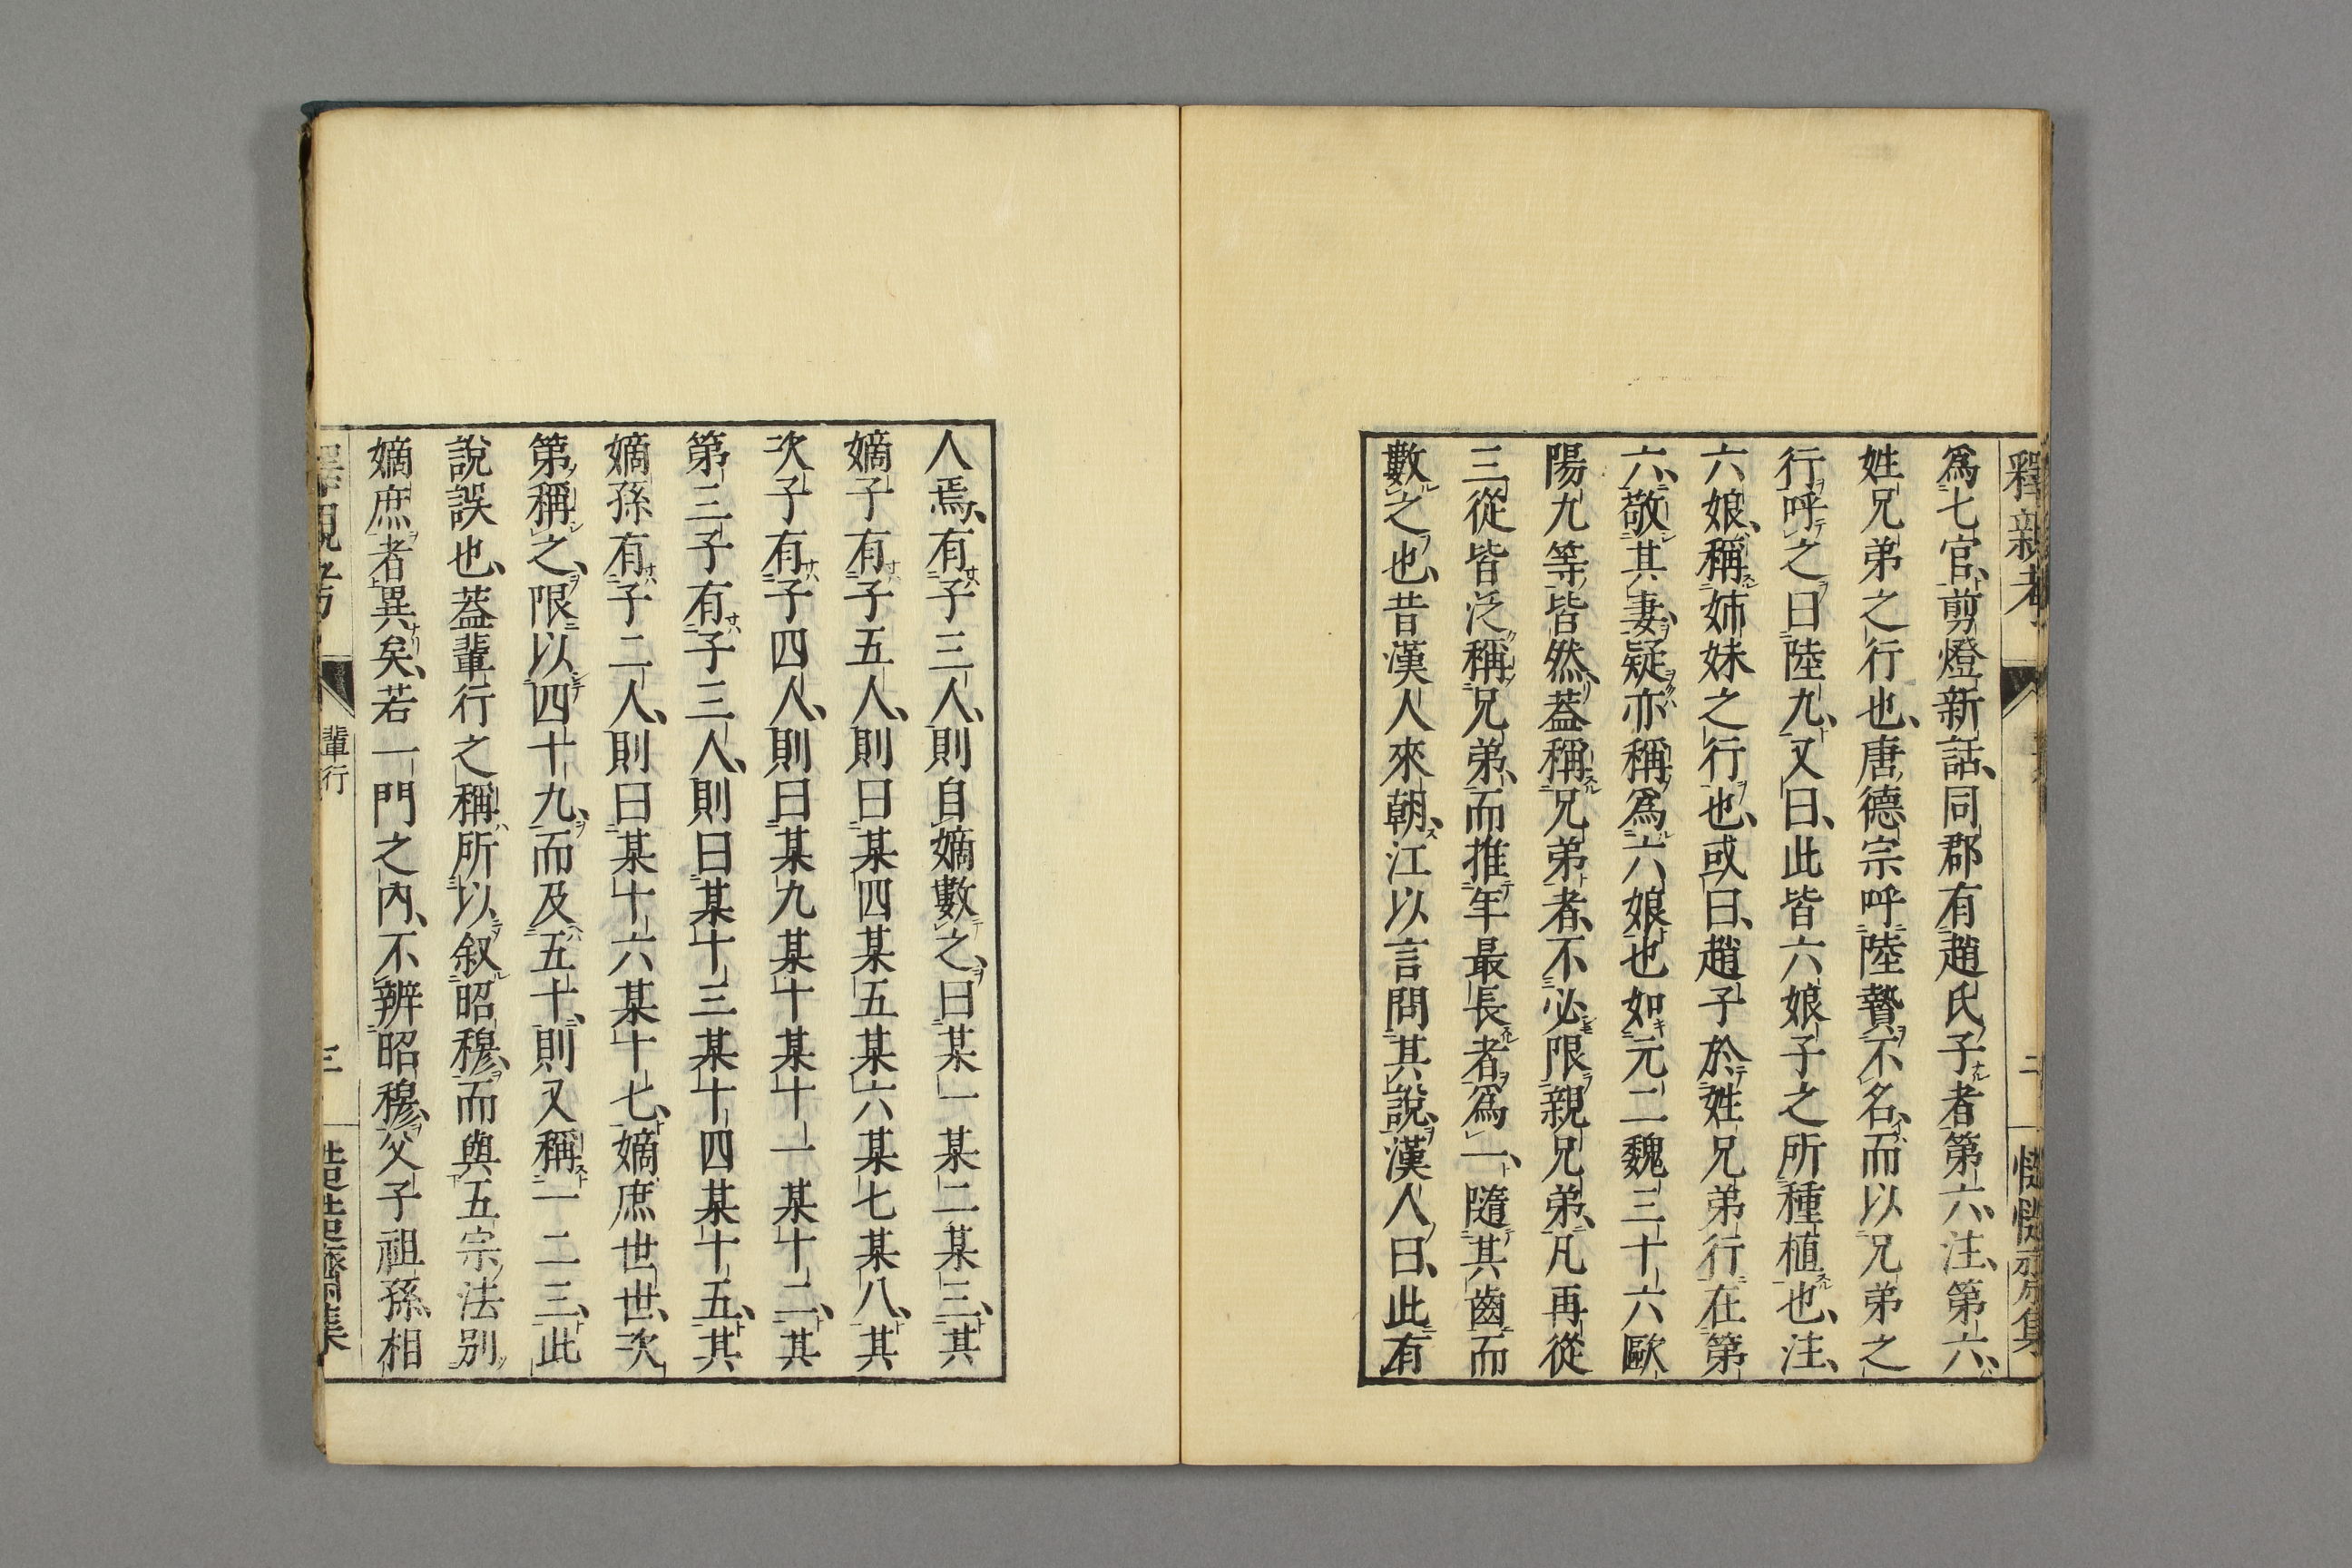 釋親考
二
爲七官、剪燈新話、同郡有趙氏子者第六、注、第六、
姓兄弟之行也、唐德宗呼陸贄不名、而以兄弟之
行呼之曰陸九、又曰、此皆六娘子之所種植也、注、
六娘、稱姉妹之行也、或曰、趙子於姓兄弟行在第
六、敬其妻、疑亦稱爲六娘也如元二魏三十六歐
陽九等皆然蓋稱兄弟者、不必限親兄弟、凡再從
三從皆泛稱兄弟、而推年最長者爲一、隨其齒而
數之也、昔漢人來朝、江以言問其說、漢人曰、此有
人焉、有子三人、則自嫡數之、曰某一某二某三、其
嫡子有子五人、則曰某四某五某六某七某八、其
次子有子四人、則曰某九某十某十一某十二、其
第三子有子三人、則曰某十三某十四某十五、其
嫡孫有子二人、則曰某十六某十七、嫡庶世世、次
第稱之、限以四十九、而及五十、則又稱一二三、此
說誤也、蓋輩行之稱所以叙昭穆、而與五宗法別
嫡庶者異矣、若一門之內、不辨昭穆、父子祖孫、相
輩行
三